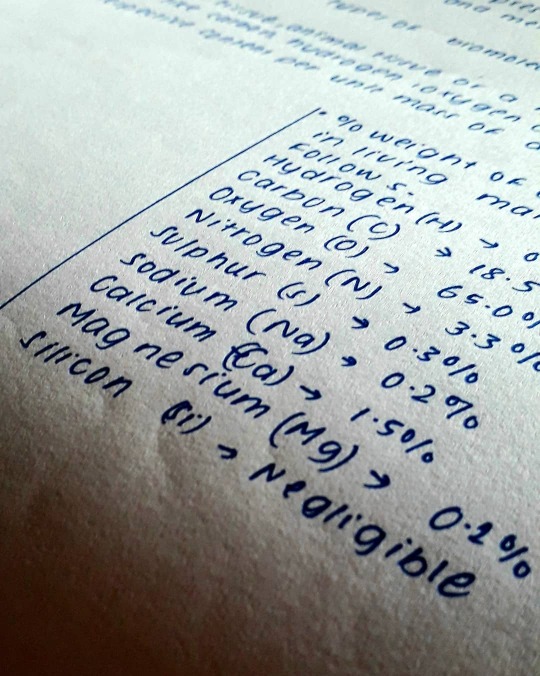 types of biomole
and me
tissue, animal tissue or a
carbon, hydrogen, oxygen
respective content per unit mass of
• % weight of
in living ma
follows.
Hydrogen (H) → 0
Carbon (C) → 18.5
Oxygen (O) → 65.0%
Nitrogen (N) → 3.3%
Sulphur (S) → 0.3%
Sodium (Na) → 0.2%
Calcium (Ca) → 1.5%
Magnesium (Mg) → 0.2%
Silicon (Si) → Negligible